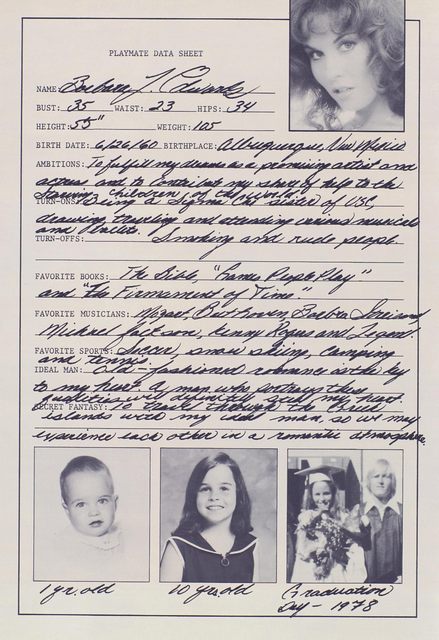 PLAYMATE DATA SHEET
NAME: Barbara J. Edwards
BUST: 35 WAIST: 23 HIPS: 34
HEIGHT: 5'5" WEIGHT: 105
BIRTH DATE: 6/26/60 BIRTHPLACE: Albuquerque, New Mexico
AMBITIONS: To fulfill my dreams as a promising artist and
actress and to contribute my share of help to the
starving children of the world.
TURN-ONS: Being a Sigma Chi sister of USC,
drawing, traveling and attending various musicals
and
TURN-OFFS: Smoking and rude people.
FAVORITE BOOKS: The Bible, "Games People Play"
and "The Firmament of Time."
FAVORITE MUSICIANS: Mozart, Beethoven, Barbra Streisand,
Michael Jackson, Kenny Rogers and
FAVORITE SPORTS: Soccer, snow skiing, camping
and tennis.
IDEAL MAN: Old-fashioned romance is the key
to my heart. A man who portrays these
qualities will definitely steal my heart.
SECRET FANTASY: To travel through the Greek
islands with my ideal man, so we may
experience each other in a romantic atmosphere.
1 yr. old 10 yrs. old Graduation
Day - 1978